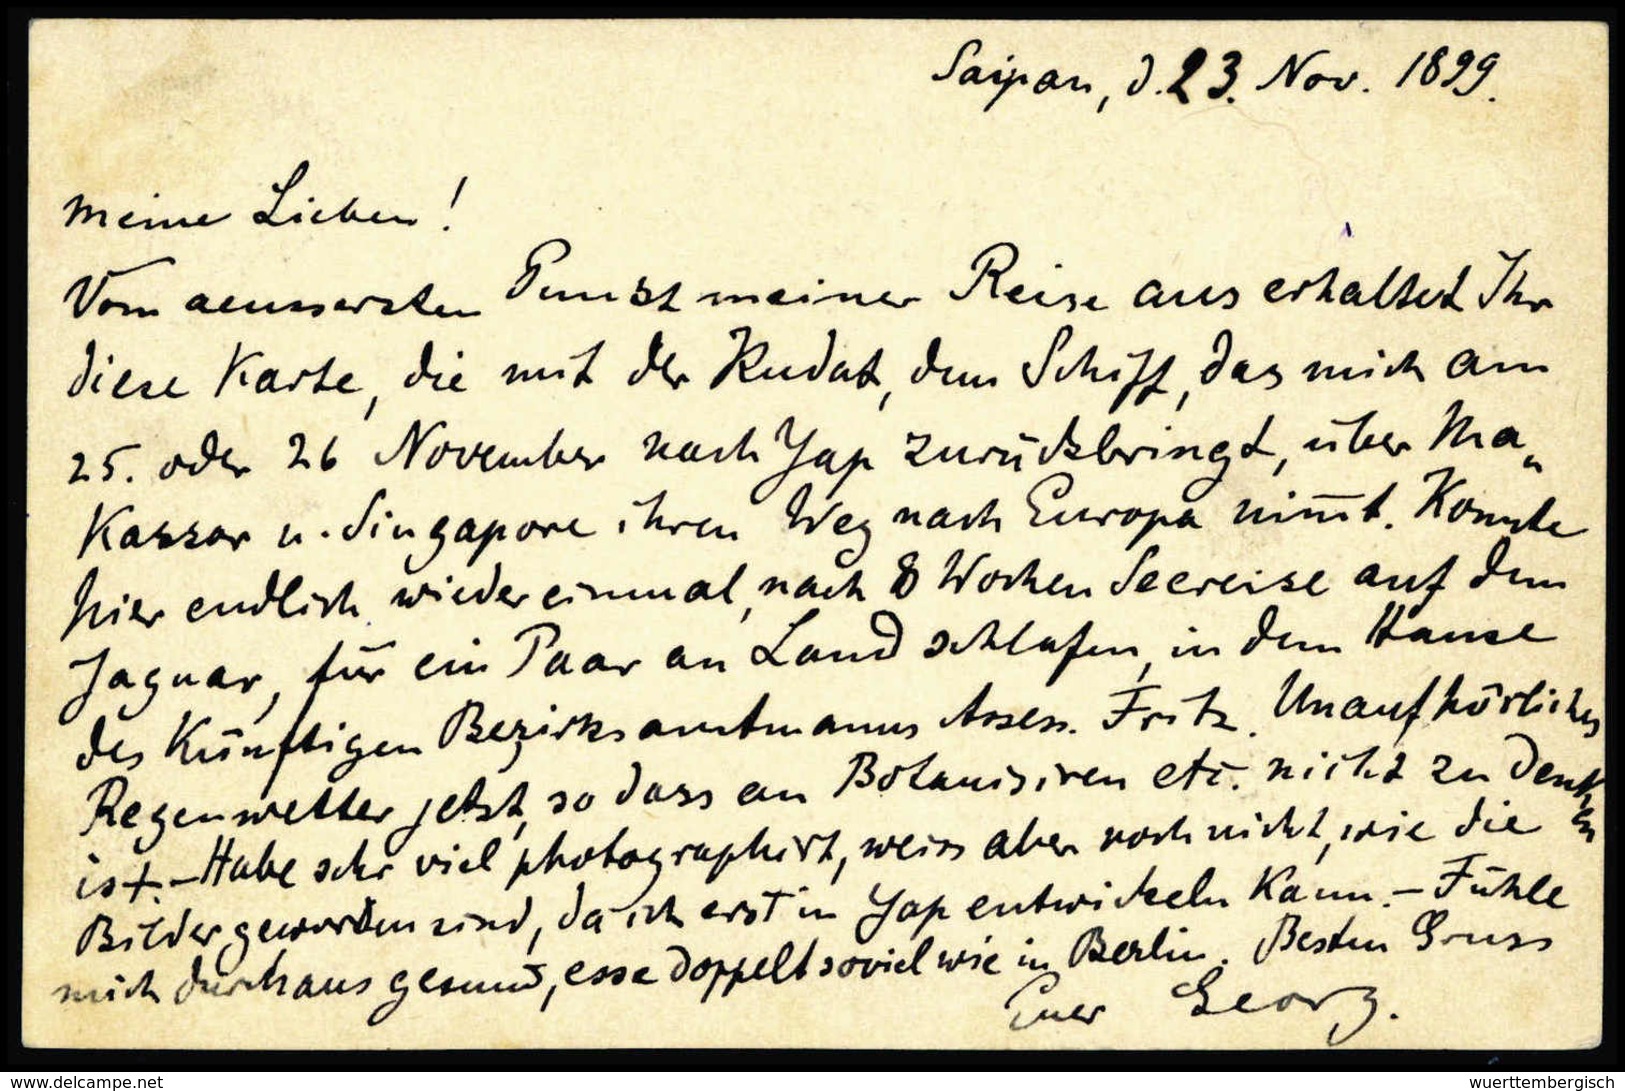 Saipan, d. 23. Nov. 1899.
Meine Lieben!
Vom aeussersten Punkt meiner Reise aus erhaltet Ihr
diese Karte, die mit der Kudat, dem Schiff, das mich am
25. oder 26 November nach Yap zurückbringt, über Ma„
Kassar u. Singapore ihren Weg nach Europa nim̅t. Konnte
hier endlich wiedereinmal, nach 8 Wochen Seereise auf dem
Jaguar, für ein Paar an Land schlafen, in dem Hause
des Künftigen Bezirksamtmanns Assess. Fritz. Unaufhörliches
Regenwetter jetzt, so dass an Botanisiren etc. nicht zu denken
ist. – Habe sehr viel photographirt, weiss aber noch nicht, wie die
Bilder geworden sind, da ich erst in Yap entwickeln Kann. – Fühle
mich durchaus gesund, esse doppelt soviel wie in Berlin. Besten Gruss
Euer Georg.
www.delcampe.net
wuerttembergisch